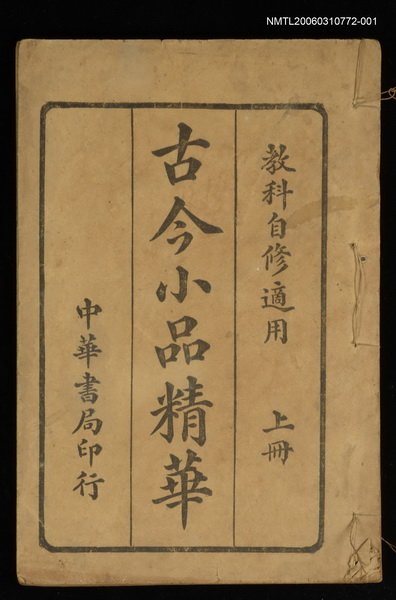 NMTL20060310772-001
教科自修適用 上冊
古今小品精華
中華書局印行